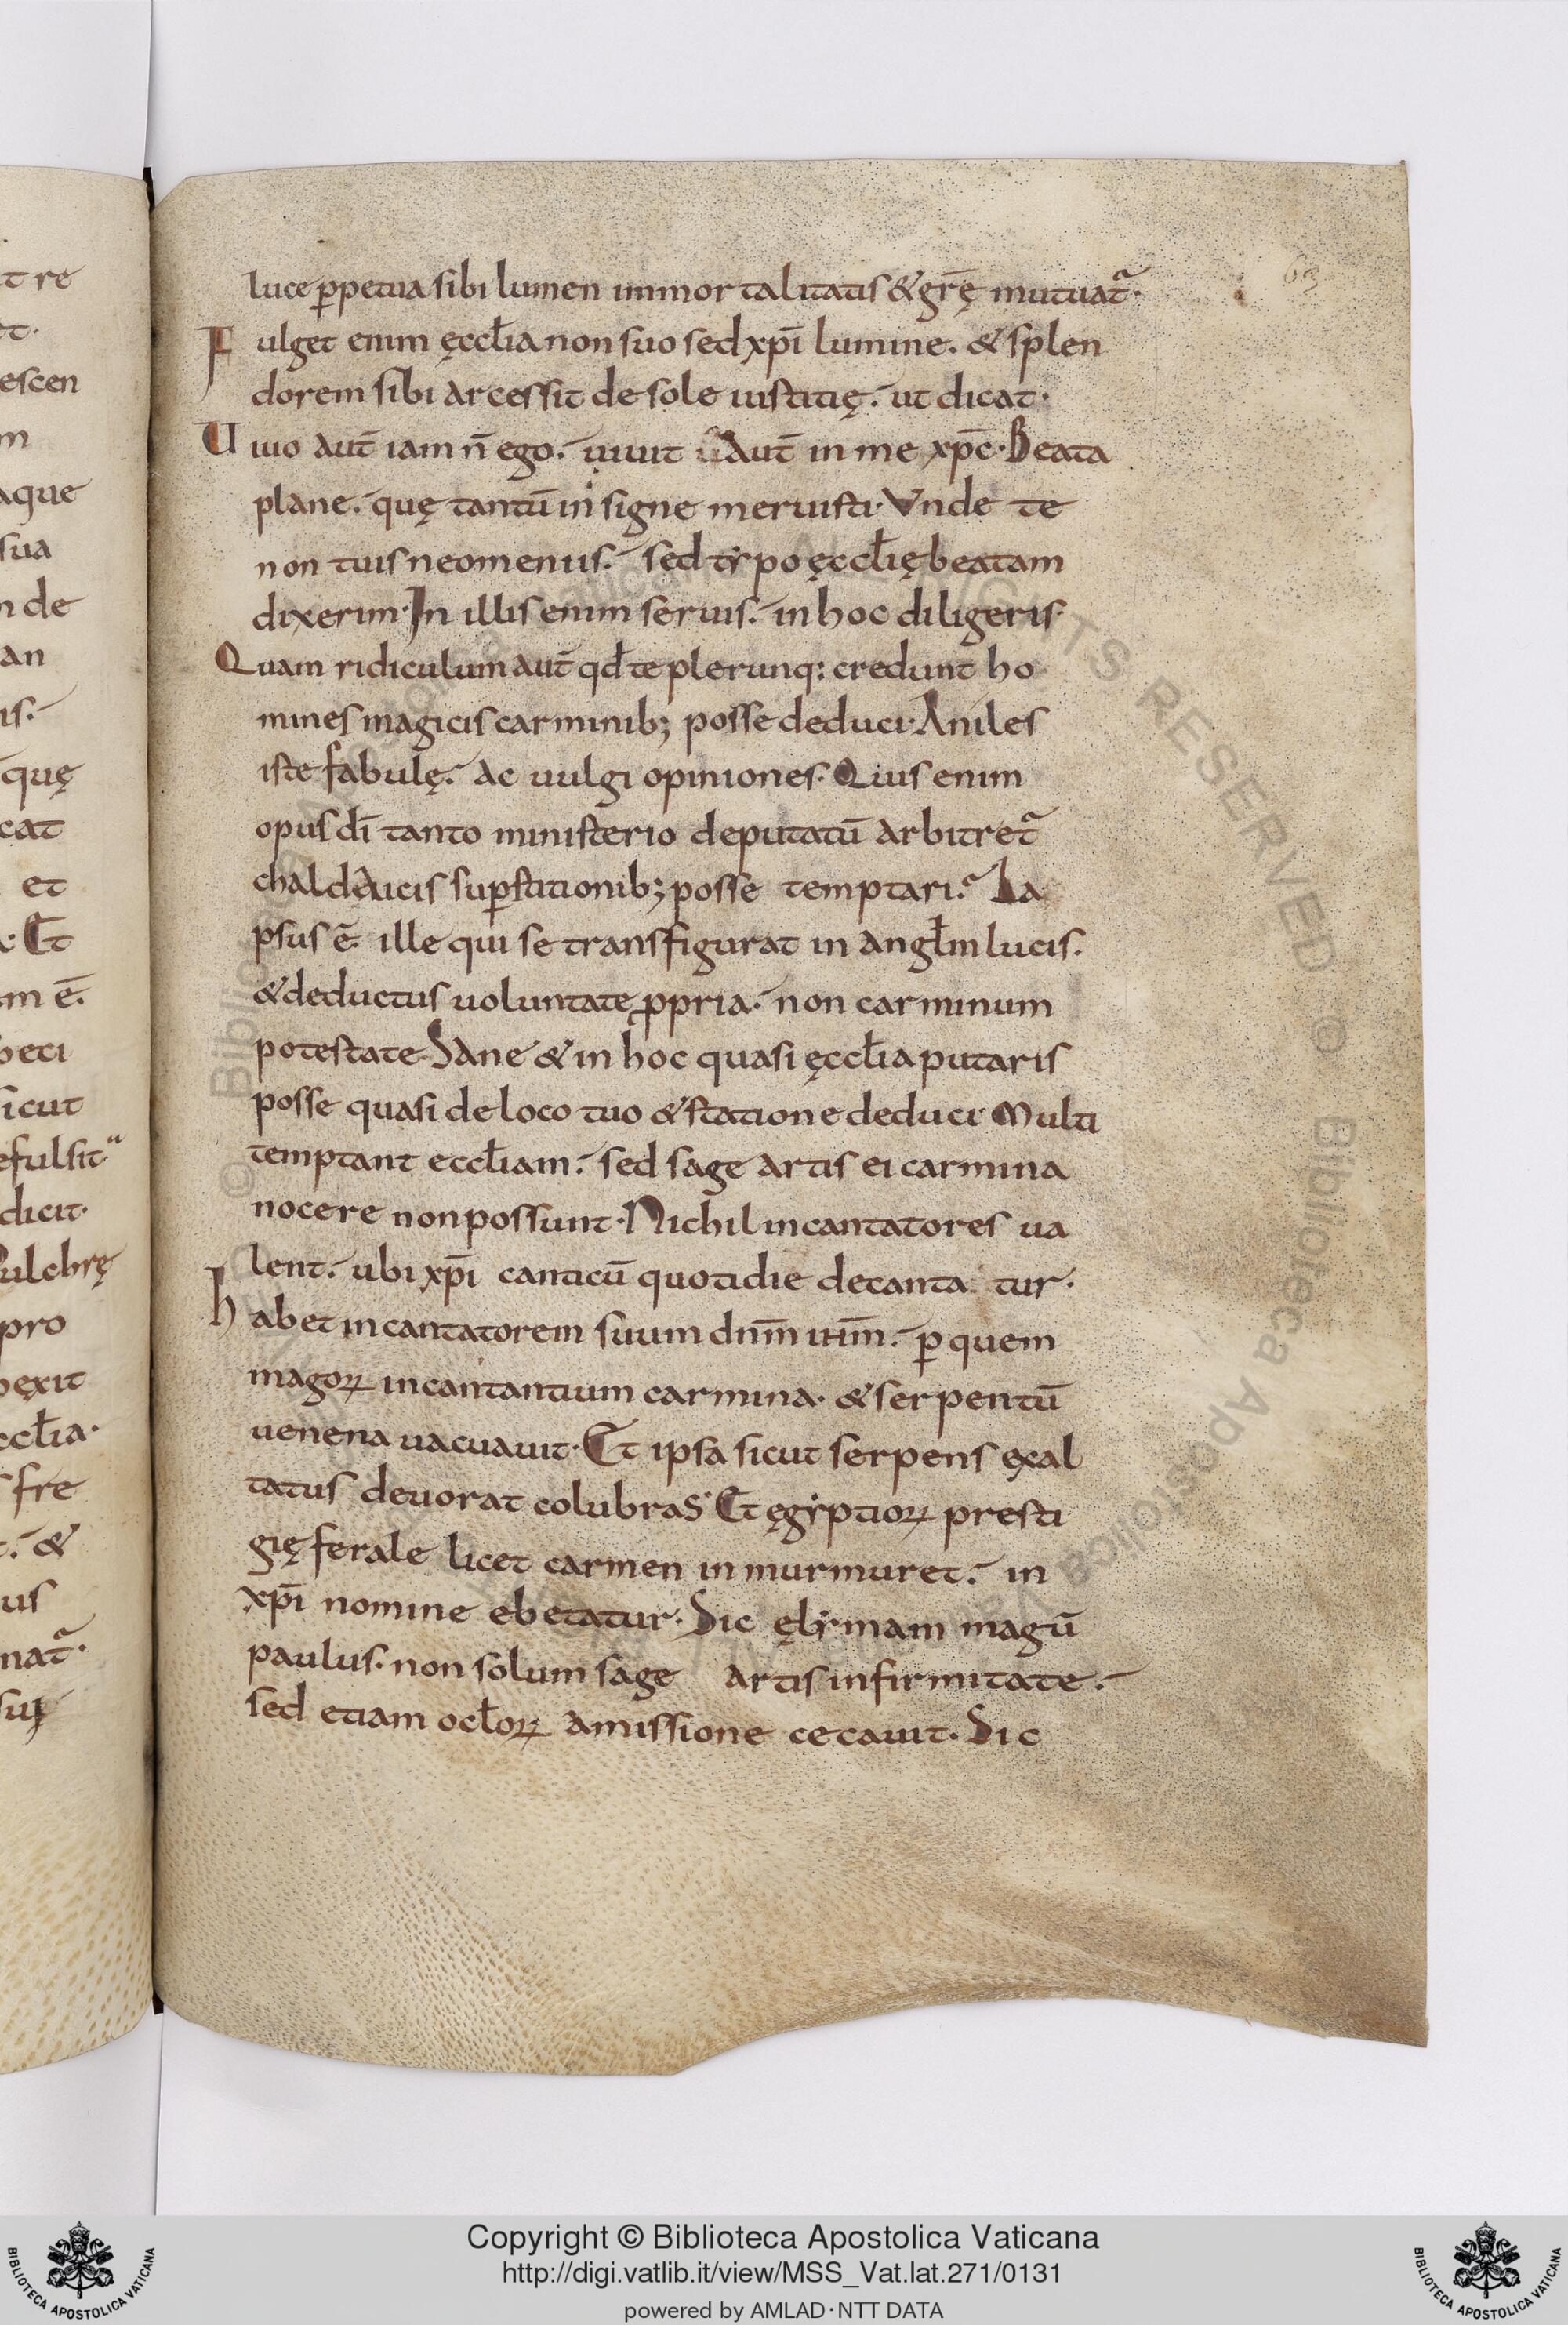 63
luce ꝑpetua sibi lumen immortalitatis & gr̄ę mutuat᷑·
Fulget enim ęccłia non suo sed xp̄i lumine. & splen
dorem sibi arcessit de sole iustitię. ut dicat·
Uiuo aut̄ iam n̄ ego. uiuit aut̄ in me xp̄c· Beata
plane. quę tantū insigne meruisti· Vnde te
non tuis neomeniis. sed tẏpo ęccłię beatam
dixerim· In illis enim seruis. in hoc diligeris·
Quam ridiculum aut̄ qđ te plerunq: credunt ho
mines magicis carminib; posse deduci· Aniles
iste fabulę. ac uulgi opiniones. Quis enim
opus dī tanto ministerio deputatū arbitret᷑
chaldaicis suꝑstitionib; posse temptari. La
psus ē. ille qui se transfigurat in angłm lucis.
& deductus uoluntate ꝓpria. non carminum
potestate· Sane & in hoc quasi ęccłia putaris
posse quasi de loco tuo & statione deduci· Multi
temptant eccłiam. sed sage artis ei carmina
nocere non possunt· Nichil incantatores ua
lent. ubi xp̄i canticū quotidie decanta tur·
habet incantatorem suum dn̄m ih̄m. ꝑ quem
magoꝝ incantantium carmina· & serpentū
uenena uacuauit· Et ipsa sicut serpens ęxal
tatus deuorat colubras· Et ęgẏptioꝝ presti
gię ferale licet carmen inmurmuret. in
xp̄i nomine ebetatur· Sic ęlẏmam magū
paulus. non solum sage artis infirmitate.
sed etiam ocłoꝝ amissione cecauit. Sic
t re
escen
m
aque
sua
n de
an
is.
quę
cat
et
Et
m ē.
peti
sicut
efulsit
dicit·
Pulchrę
pro
pęxit
eccłia·
fre
. &
us
nat᷑·
© Biblioteca Apostolica Vaticana ALL RIGHTS RESERVED
Copyright © Biblioteca Apostolica Vaticana
http://digi.vatlib.it/view/MSS_Vat.lat.271/0131
powered by AMLAD·NTT DATA
BIBLIOTECA APOSTOLICA VATICANA
BIBLIOTECA APOSTOLICA VATICANA